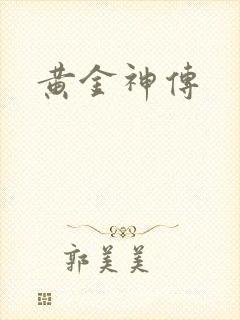 黄金神傳
郭美美